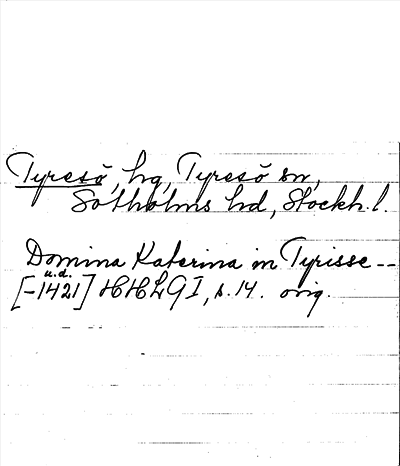 Tyresö, hg, Tyresö sn,
Sotholms hd, Stockh. l.
Domina Katerina in Tyrisse --
u.d.
[-1421] HHLGI, s. 14. orig.